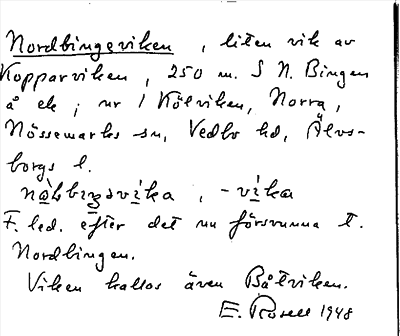 Nordbingeviken, liten vik av
Kopparviken, 250 m. S N. Bingen
å ek; nr 1 Kölviken, Norra,
Nössemarks sn, Vedbo hd, Älvs-
borgs l.
-vika
F. led. efter det nu försvunna t.
Nordbingen.
Viken kallas även Båtviken.
E. Rosell 1948